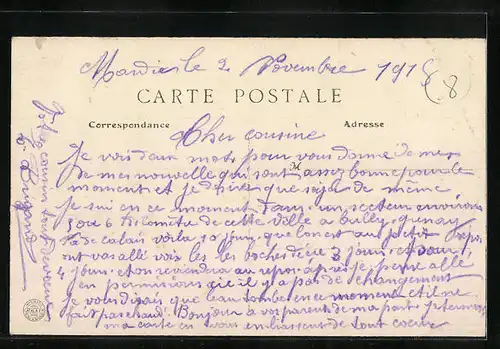 Mardi le 2 Novembre 1915
(8
CARTE POSTALE
Correspondance
Adresse
Cher cousine
Je vois deux mots pour vous donne de mes
de mes nouvelle qui sont assez bonne pour le
moment et je désire que soi de même
Je sui en ce moment dans un secteur environ
5 ou 6 kilomètre de cette ville a bully grenay
Pas de calais voila 10 jour que lon est au petit repos
ont vas allé voir les les boches tière 3 jour et pour
4 jour et on reviendra au repos après je pense allé
en permissions si il y a pas de changement
je vous dirais que la en tombe en ce moment et il ne
fait pas chaud Bonjour a vos parents de ma part Je termine
ma carte en vous embrassent de tout coeur
Votre cousin
Brigand